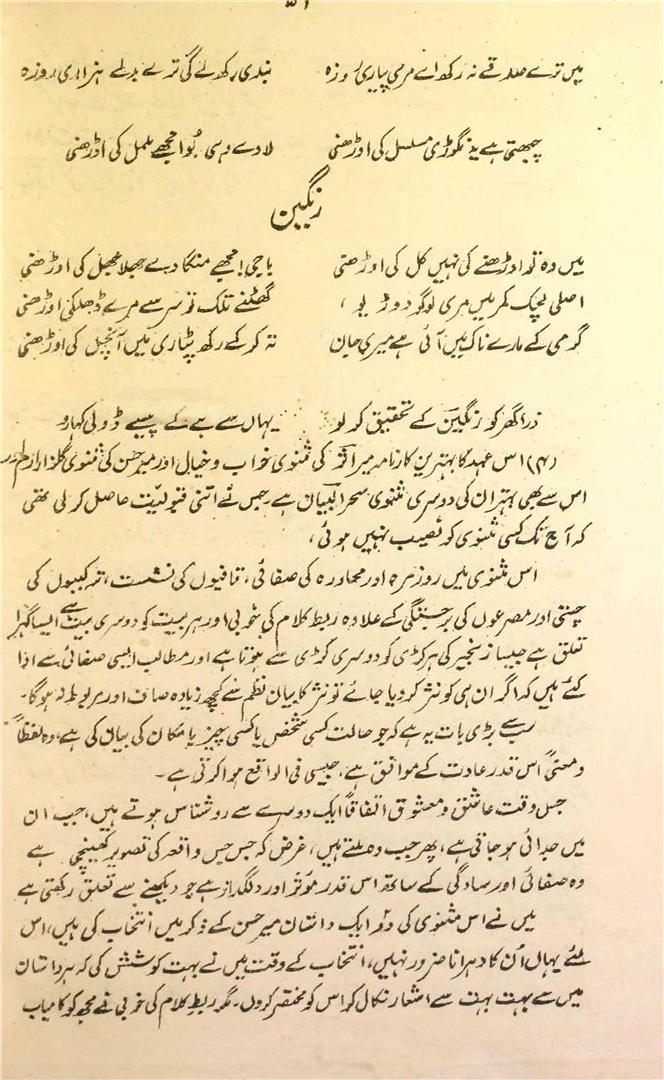 میں ترے صدقے نہ رکھ اے مری پیاری روزہ بندی رکھ لے گی ترے بدلے ہزاری روزہ
چبھتی ہے یہ نگوڑی مسلسل کی اوڑھنی لادے وہی بوا مجھے ململ کی اوڑھنی
رنگین
میں وہ تو اوڑھنے کی نہیں کل کی اوڑھنی باجی! مجھے منگا دے جھلا جھل کی اوڑھنی
اصلی لچک کمر میں مری لوگو دوڑیو، گھٹنے تلک تو سر سے مرے ڈھلکی اوڑھنی
گرمی کے مارے ناک میں آئی ہے میری جان تہ کر کے رکھ پٹاری میں آنچل کی اوڑھنی
ذرا گھر کو رنگین کے تحقیق کر لو یہاں سے ہے کے پیسے ڈولی کہارو
(۴) اس عہد کا بہترین کارنامہ میر اثر کی مثنوی خواب و خیال اور میر حسن کی مثنوی گلزار ارم اور
اس سے بھی بہتر ان کی دوسری مثنوی سحر البیان ہے جس نے اتنی قبولیت حاصل کر لی تھی
کہ آج تک کسی مثنوی کو نصیب نہیں ہوئی،
اس مثنوی میں روزمرہ اور محاورہ کی صفائی، قافیوں کی نشست، ترکیبوں کی
چستی اور مصرعوں کی برجستگی کے علاوہ ربط کلام کی خوبی اور ہر بیت کو دوسری بیت سے ایسا گہرا
تعلق ہے جیسا زنجیر کی ہر کڑی کو دوسری کڑی سے ہوتا ہے اور مطالب ایسی صفائی سے ادا
کئے ہیں کہ اگر ان ہی کو نثر کر دیا جائے تو نثر کا بیان نظم سے کچھ زیادہ صاف اور مربوط نہ ہوگا۔
سب سے بڑی بات یہ ہے کہ جو حالت کسی شخص یا کسی چیز یا مکان کی بیان کی ہے، وہ لفظاً
و معنیً اس قدر عادت کے موافق ہے، جیسی فی الواقع ہوا کرتی ہے۔
جس وقت عاشق و معشوق اتفاقاً ایک دوسرے سے روشناس ہوتے ہیں، جب ان
میں جدائی ہو جاتی ہے، پھر جب وہ ملتے ہیں، غرض کہ جس جس واقعہ کی تصویر کھینچی ہے
وہ صفائی اور سادگی کے ساتھ اس قدر مؤثر اور دلگداز ہے جو دیکھنے سے تعلق رکھتی ہے
میں نے اس مثنوی کی دو ایک داستان میر حسن کے ذکر میں انتخاب کی ہیں، اس
لئے یہاں اُن کا دہرانا ضرور نہیں، انتخاب کے وقت میں نے بہت کوشش کی کہ ہر داستان
میں سے بہت بہت سے اشعار نکال کر اس کو مختصر کروں۔ مگر ربط کلام کی خوبی نے مجھ کو کامیاب